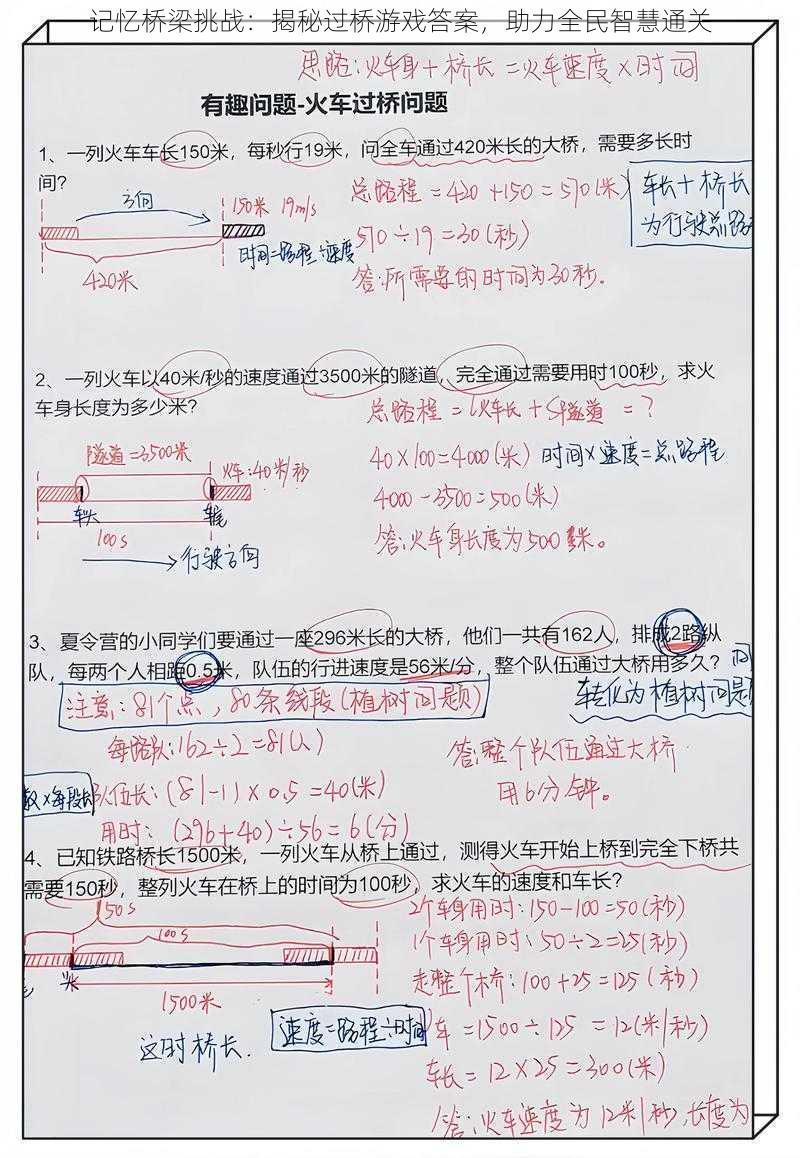 记忆桥梁挑战：揭秘过桥游戏答案，助力全民智慧通关
思路:火车身+桥长=火车速度×时间
有趣问题-火车过桥问题
1、一列火车车长150米，每秒行19米，问全车通过420米长的大桥，需要多长时
间？
总路程=420+150=570(米)
车长+桥长
为行驶总路
方向
150米 19m/s
570÷19=30(秒)
时间=路程÷速度
420米
答:所需要的时间为30秒.
2、一列火车以40米/秒的速度通过3500米的隧道，完全通过需要用时100秒，求火
车身长度为多少米？
总路程=S火车长+S隧道=?
隧道=3500米
火车:40米/秒
40×100=4000(米) 时间×速度=总路程
4000-3500=500(米)
车头
车尾
100s
答:火车身长度为500米。
行驶方向
3、夏令营的小同学们要通过一座296米长的大桥，他们一共有162人，排成2路纵
队，每两个人相距0.5米，队伍的行进速度是56米/分，整个队伍通过大桥用多久？
注意:81个点,80条线段(植树问题)
转化为植树问题
每路队:162÷2=81(人)
答:整个队伍通过大桥
×每段长
队伍长:(81-1)×0.5=40(米)
用6分钟。
用时:(296+40)÷56=6(分)
4、已知铁路桥长1500米，一列火车从桥上通过，测得火车开始上桥到完全下桥共
需要150秒，整列火车在桥上的时间为100秒，求火车的速度和车长？
150s
2个车身用时:150-100=50(秒)
100s
1个车身用时:50÷2=25(秒)
走整个桥:100+25=125(秒)
1500米
速度=路程÷时间
车=1500÷125=12(米/秒)
这时桥长.
车长=12×25=300(米)
答:火车速度为12米/秒,长度为